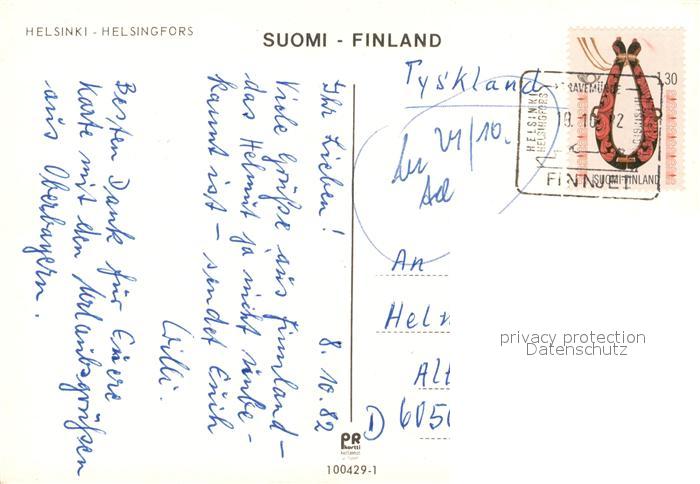 HELSINKI - HELSINGFORS
SUOMI - FINLAND
Ihr Lieben! 8.10.82
Viele Grüße aus Finnland –
das Helmut ja nicht unbe-
kannt ist – sendet Euch
Willi.
Besten Dank für Euere
Karte mit den Urlaubsgrüßen
aus Oberbayern.
Tyskland
21/10.
An
Helm
Alt
D 6050
1,30
SUOMI-FINLAND
TRAVEMÜNDE
HELSINKI
HELSINGFORS
10.10.82
FINNJET
privacy protection
Datenschutz
PR
kortti
100429-1